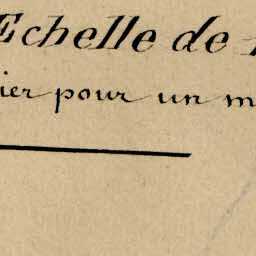 Echelle de
ier pour un m